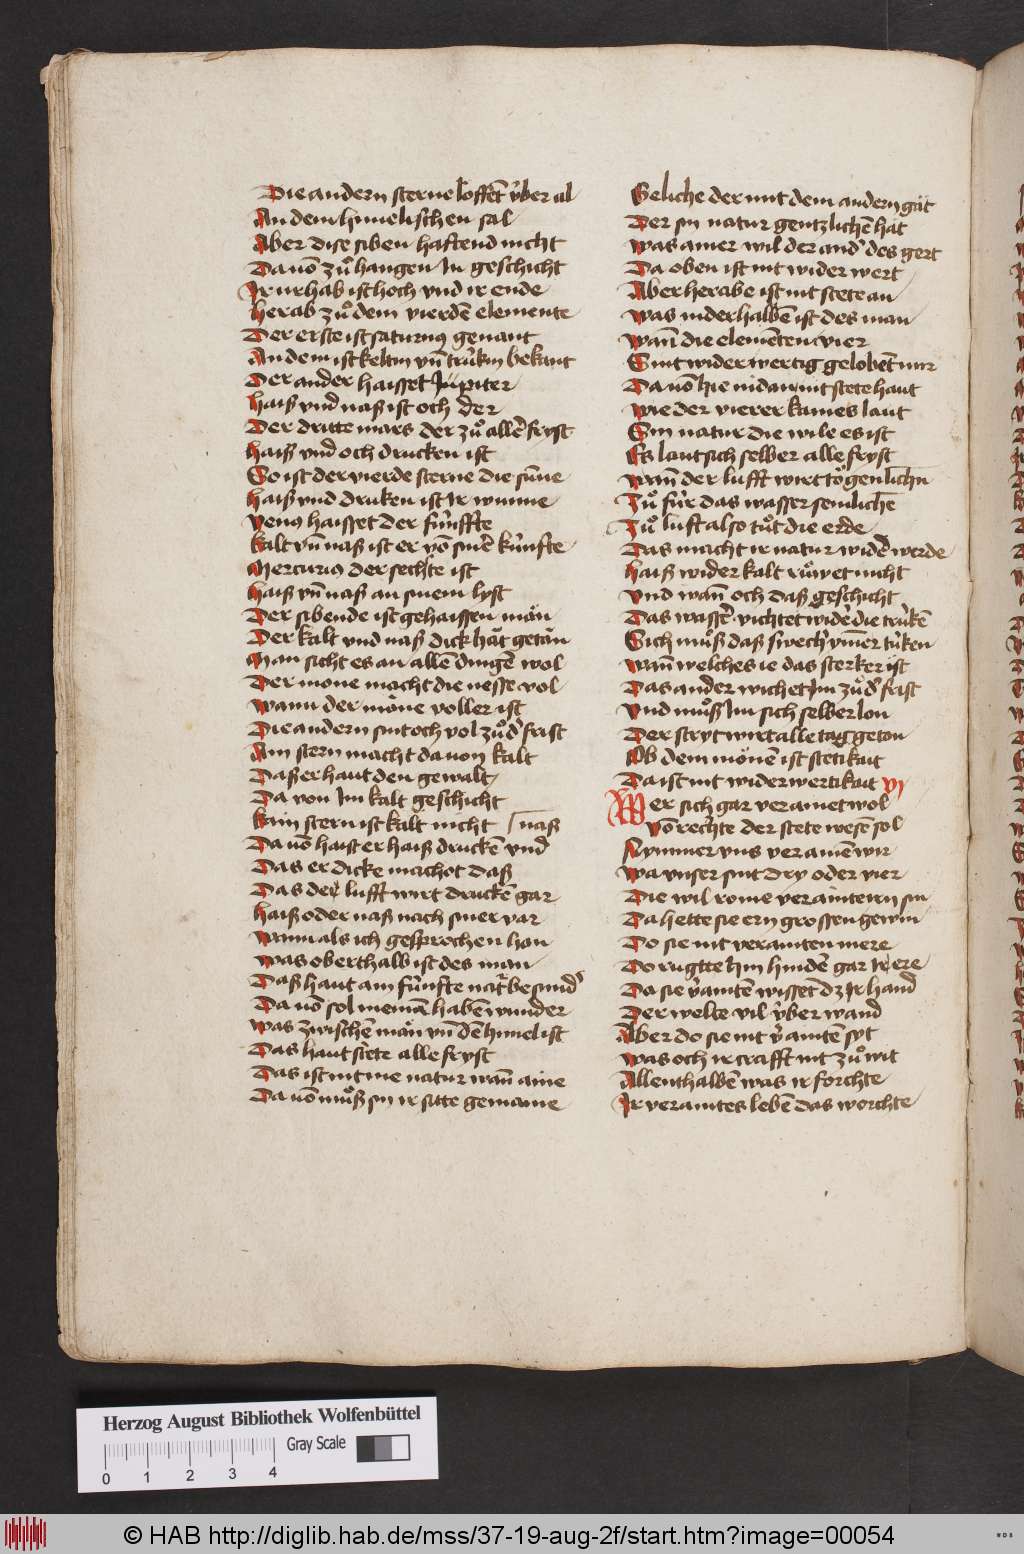 Die andern sterne loffet v̍ber al
An dem himelischen sal
Aber dise siben haftend nicht
Da vō zů hangen Jn geschicht
Jr vrhab ist hoch vnd ir ende
herab zů dem vierdē elemente
Der erste ist saturnus genant
An dem ist keltin vn̄ trúkin bekant
Der ander haisset Jupiter
haiß vnd naß ist och der
Der dritte mars der zů allē fryst
haiß vnd och drucken ist
So ist der vierde sterne die sūne
haiß vnd druken ist Jr wunne
Venus haisset der fúnffte
kalt vn̄ naß ist er vō sinē kúnfte
Mercurius der sechste ist
haiß vn̄ naß an sinem lyst
Der sibende ist gehaissen män
Der kalt vnd naß dick hät getän
Man sicht es an allē dingē wol
Der mone macht die nesse vol
wann der möne voller ist
Die andern sint och vol zů d' frist
Am stern macht da von kalt
Daß er haut den gewalt
Da von Jm kalt geschicht
kain stern ist kalt nicht naß
Da vō haist er haiß druckē vnd
Das er dicke machot daß
Das der lufft wirt druckē gar
haiß oder naß nach siner var
wann als ich gesprochen han
was oberthalb ist des man
Daß haut am fúnfte nat' besund'
Da vō sol nieman habē wunder
was zwischē män vn̄ dē himel ist
Das haut stete alle fryst
Das ist nit me natur wan̄ aine
Da vō můß sin ir sitte gemaine
Geliche der mit dem andern gät
Der sin natur gentzlichē hät
was ainer wil der and' des gert
Da oben ist nit wider wert
Aber herabe ist nit stete an
was niderhalbē ist des man
wan̄ die elemēten vier
Sint wider wertig gelobēt mir
Da vō hie nidan nit stete haut
wie der vierer kames laut
Sin natur die wile es ist
Es laut sich selber alle fryst
wan̄ der lufft wirt tögenlichn̄
Zů fúr das wasser semlichē
Zů luft also tůt die erde
Das macht ir natur widē werde
haiß wider kalt růwet nicht
vnd wan̄ och daß geschicht
Das wassē vichtet widē die trúkē
Sich můß daß swech ym̄er tuken
wan̄ welches ie das sterker ist
Das ander wichet Jm zů d' frist
vnd můß Jm sich selber lon
Der stryt wirt alle tag geton
Ob dem mönē ist stetikait
Da ist nit wider wertikait vj
Wer sich gar veramet wol
Vō rechte der stete wesē sol
Nymmer vns veramē wir
wa vnser sint dry oder vier
Die wil rome verainteirn sin
Da hette sie ern grossen gewin
Do sie nit verainten mere
Do rugtte hin hindē gar Jr ere
Da sie v̍aintē wisset dz Jr hand
Der welte vil v̍ber wand
Aber do sie nit v̍aintē syt
was och ir crafft nit zů wit
Allenthalbē was ir forchte
Jr veraintes lebē das worchte
Herzog August Bibliothek Wolfenbüttel
Gray Scale
0 1 2 3 4
© HAB http://diglib.hab.de/mss/37-19-aug-2f/start.htm?image=00054